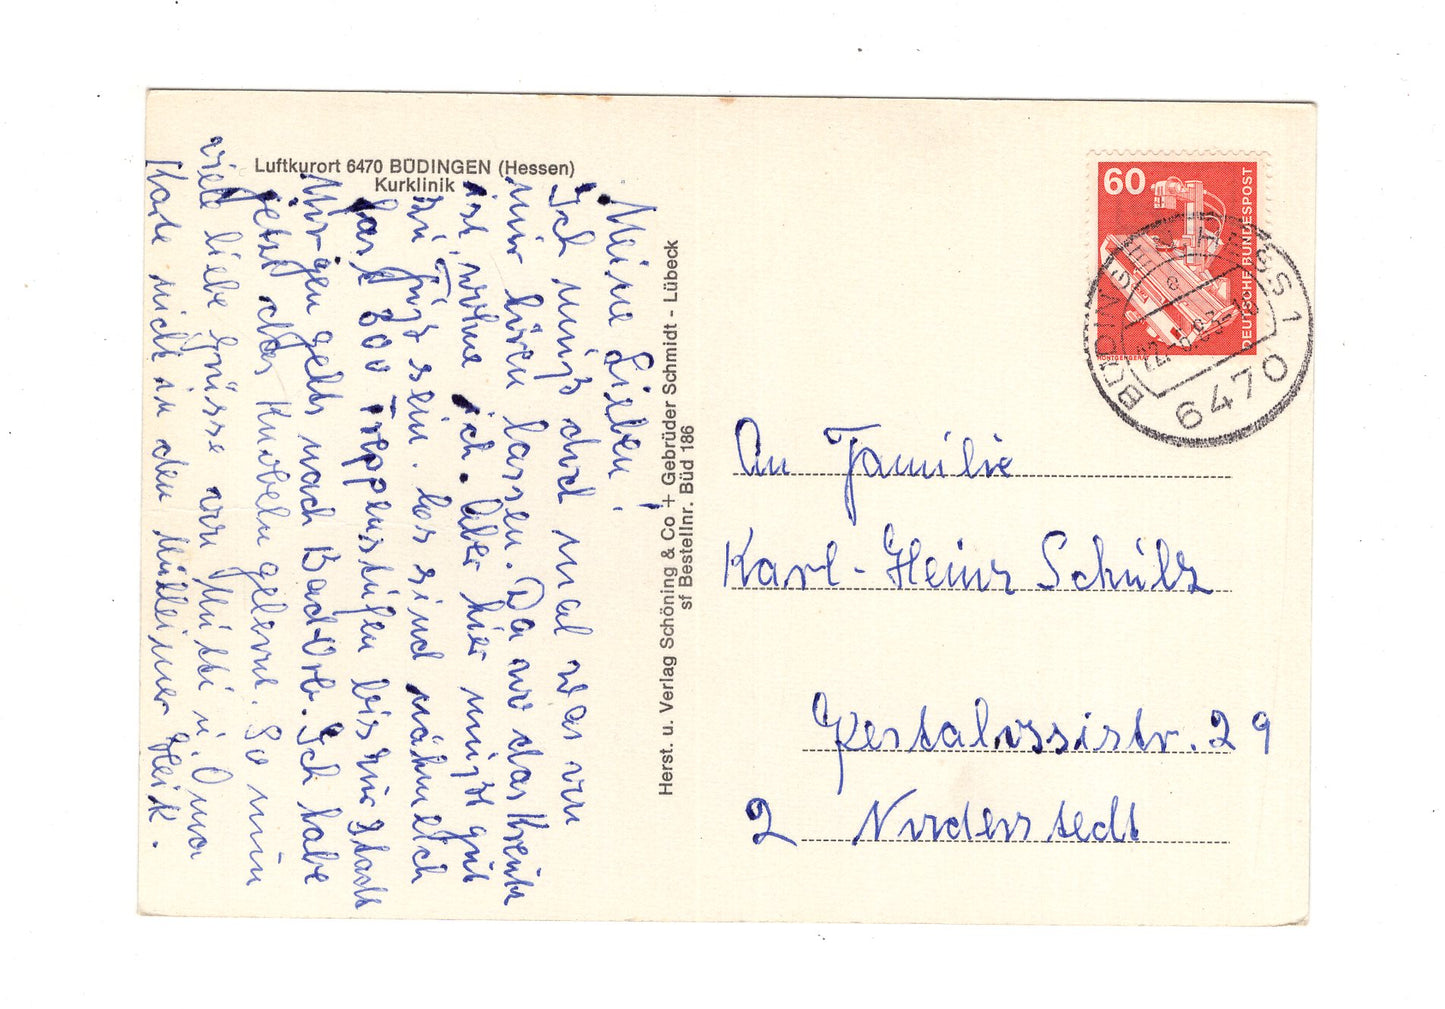 Luftkurort 6470 BÜDINGEN (Hessen)
Kurklinik
Meine Lieben!
Ich muß doch mal was von
mir hören lassen. Da wo das Kreuz
ist, wohne ich. Aber hier müßt gut
zu Fuß sein. Es sind nähmlich
fast 300 Treppenstufen bis zur Stadt
Morgen gehts nach Bad-Orb. Ich habe
jetzt das Knobeln gelernt. So nun
viele liebe Grüsse von Mutti u. Oma
Karte nicht in den Mülleimer Heik.
Herst. u. Verlag Schöning & Co + Gebrüder Schmidt - Lübeck
sf Bestellnr. Büd 186
60
DEUTSCHE BUNDESPOST
RÖNTGENGERÄT
BÜDINGEN, HESS 1
6470
An Familie
Karl-Heinz Schulz
Pestalozzistr. 29
2 Norderstedt